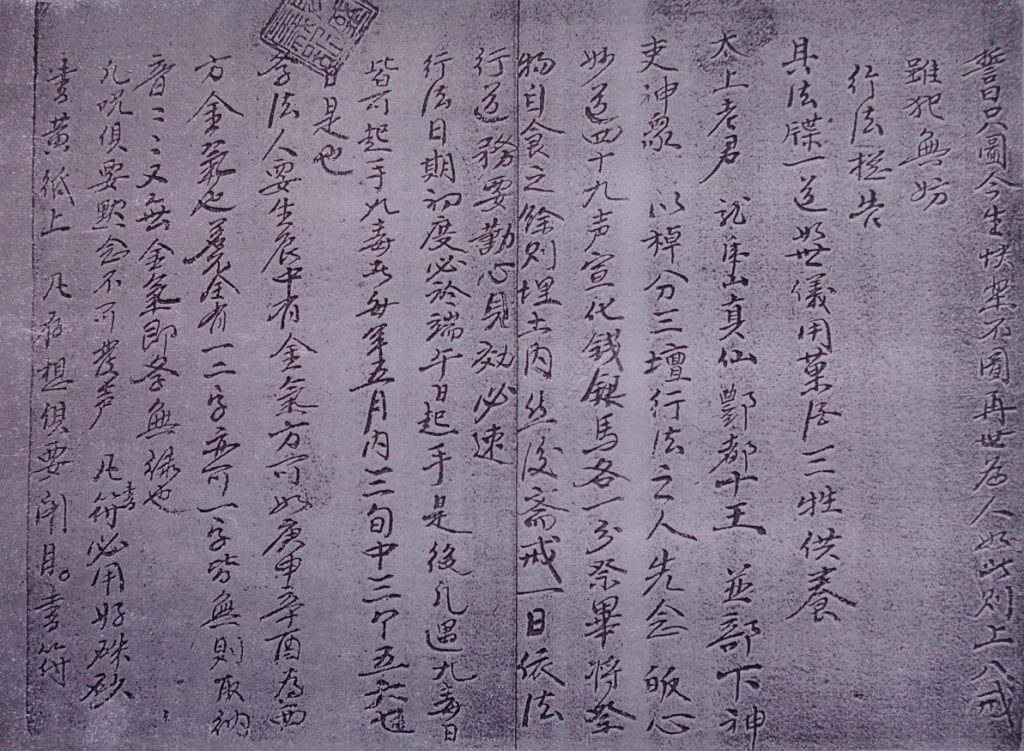 誓曰只圖今生快樂不圖再世為人如此則上八戒
雖犯無妨
行法控告
具法牒一道如儀用菓酒三牲供養
太上老君 真仙酆都十王 並部下神
吏神眾 以棹分三壇行法之人先念皈心
妙道四十九声宣化錢銀馬各一分祭畢將祭
物自食之餘則埋土內然後斎戒一日依法
行道務要勤心見効必速
行法日期初度必於端午日起手是後凡遇九毒日
皆可起手九毒者每年五月內三旬中三个五六七
日是也
學法人要生辰中有金氣方可如庚申辛酉為西
方金氣也若全有一二字亦可一字皆無則取納
音二二又無金氣即學無緣也
凡咒俱要默念不可發声 凡書符必用好硃砂
書黃紙上 凡存想俱要閉目。書符